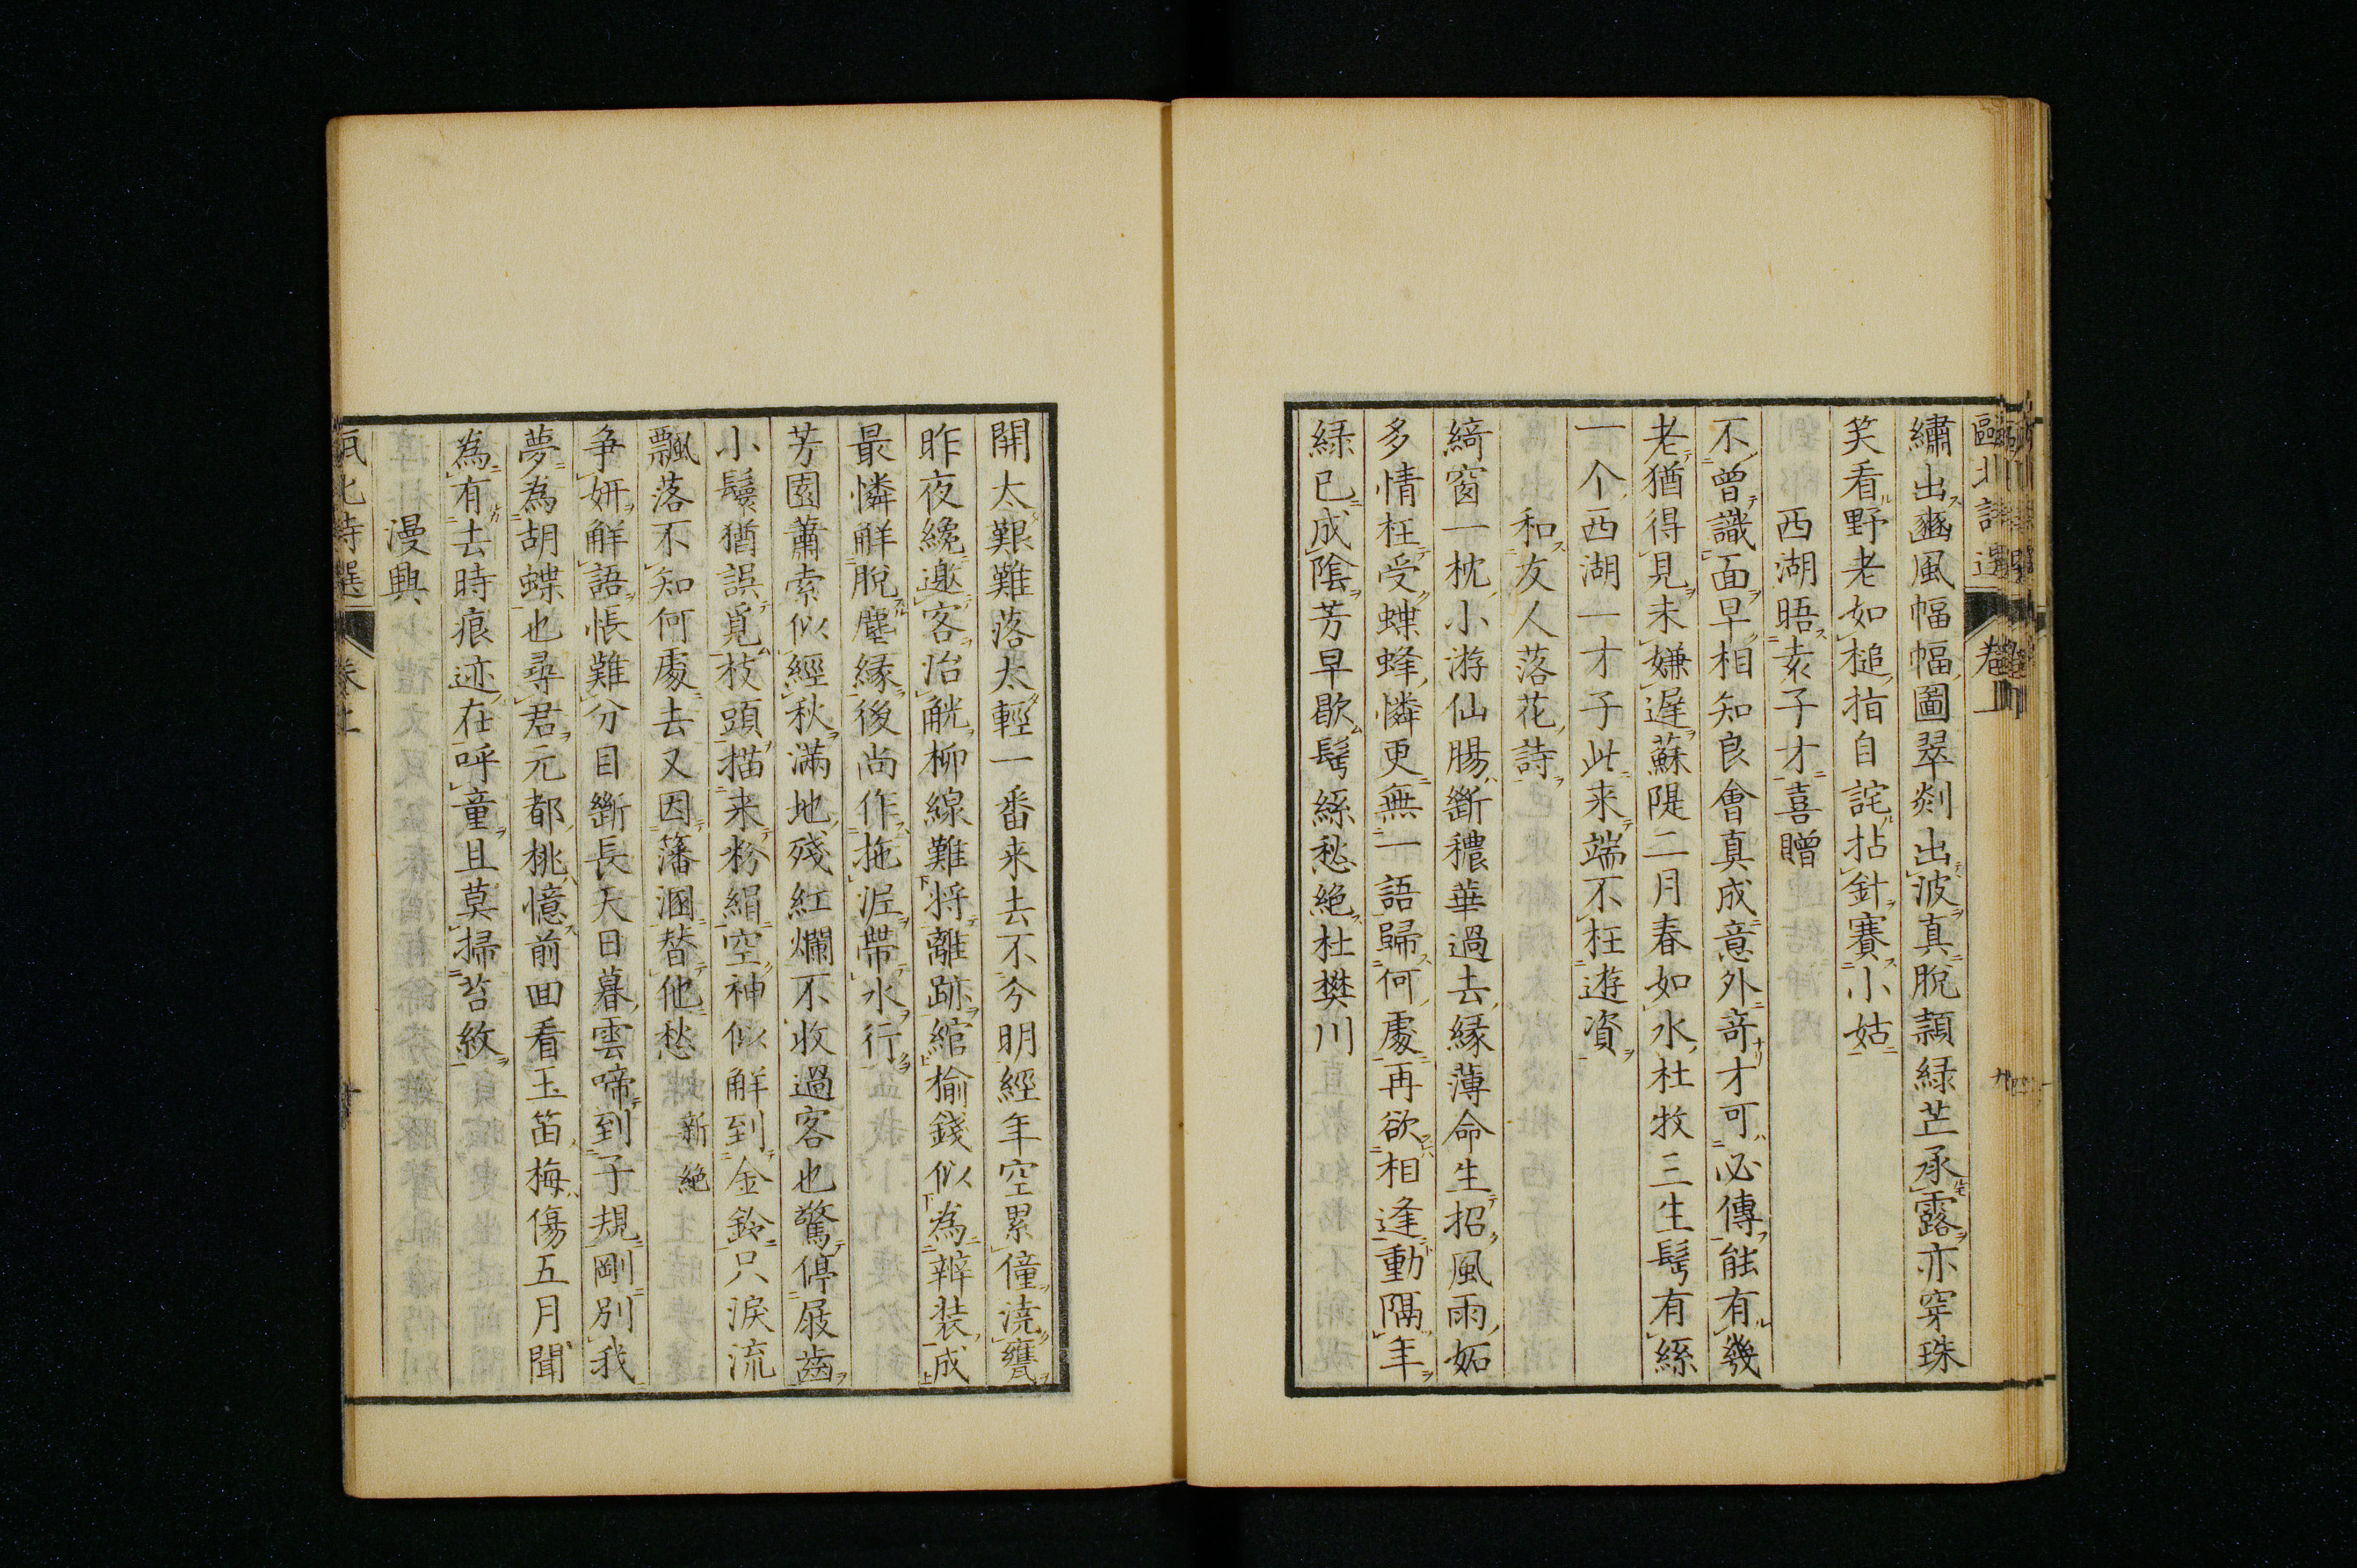 繡出豳風幅幅圖翠剡出波真脫頴緑芒承露亦穿珠
笑看野老如槌指自詫拈針賽小姑
西湖晤袁子才喜贈
不曾識面早相知良會真成意外竒才可必傳能有幾
老猶得見未嫌遅蘇隄二月春如水杜牧三生髩有絲
一个西湖一才子此来端不枉遊資
和友人落花詩
綺窗一枕小游仙腸斷穠華過去縁薄命生招風雨妬
多情枉受蝶蜂憐更無一語歸何處再欲相逢動隔年
緑已成陰芳早歇髩絲愁絶杜樊川
開太艱難落太輕一番来去不分明經年空累僮澆甕
昨夜纔邀客治觥柳線難将離跡綰榆錢似為辦装成
最憐解脫塵緣後尚作拖泥帶水行
芳園蕭索似經秋滿地殘紅爛不收過客也驚停屐齒
小鬟猶誤覓枝頭描来粉絹空神似解到金鈴只淚流
飄落不知何處去又因藩溷替他愁 新絶
争妍解語悵難分目斷長天日暮雲啼到子規剛別我
夢為胡蝶也尋君元都桃憶前回看玉笛梅傷五月聞
為有去時痕迹在呼童且莫掃苔紋
漫興
甌北詩選
卷上